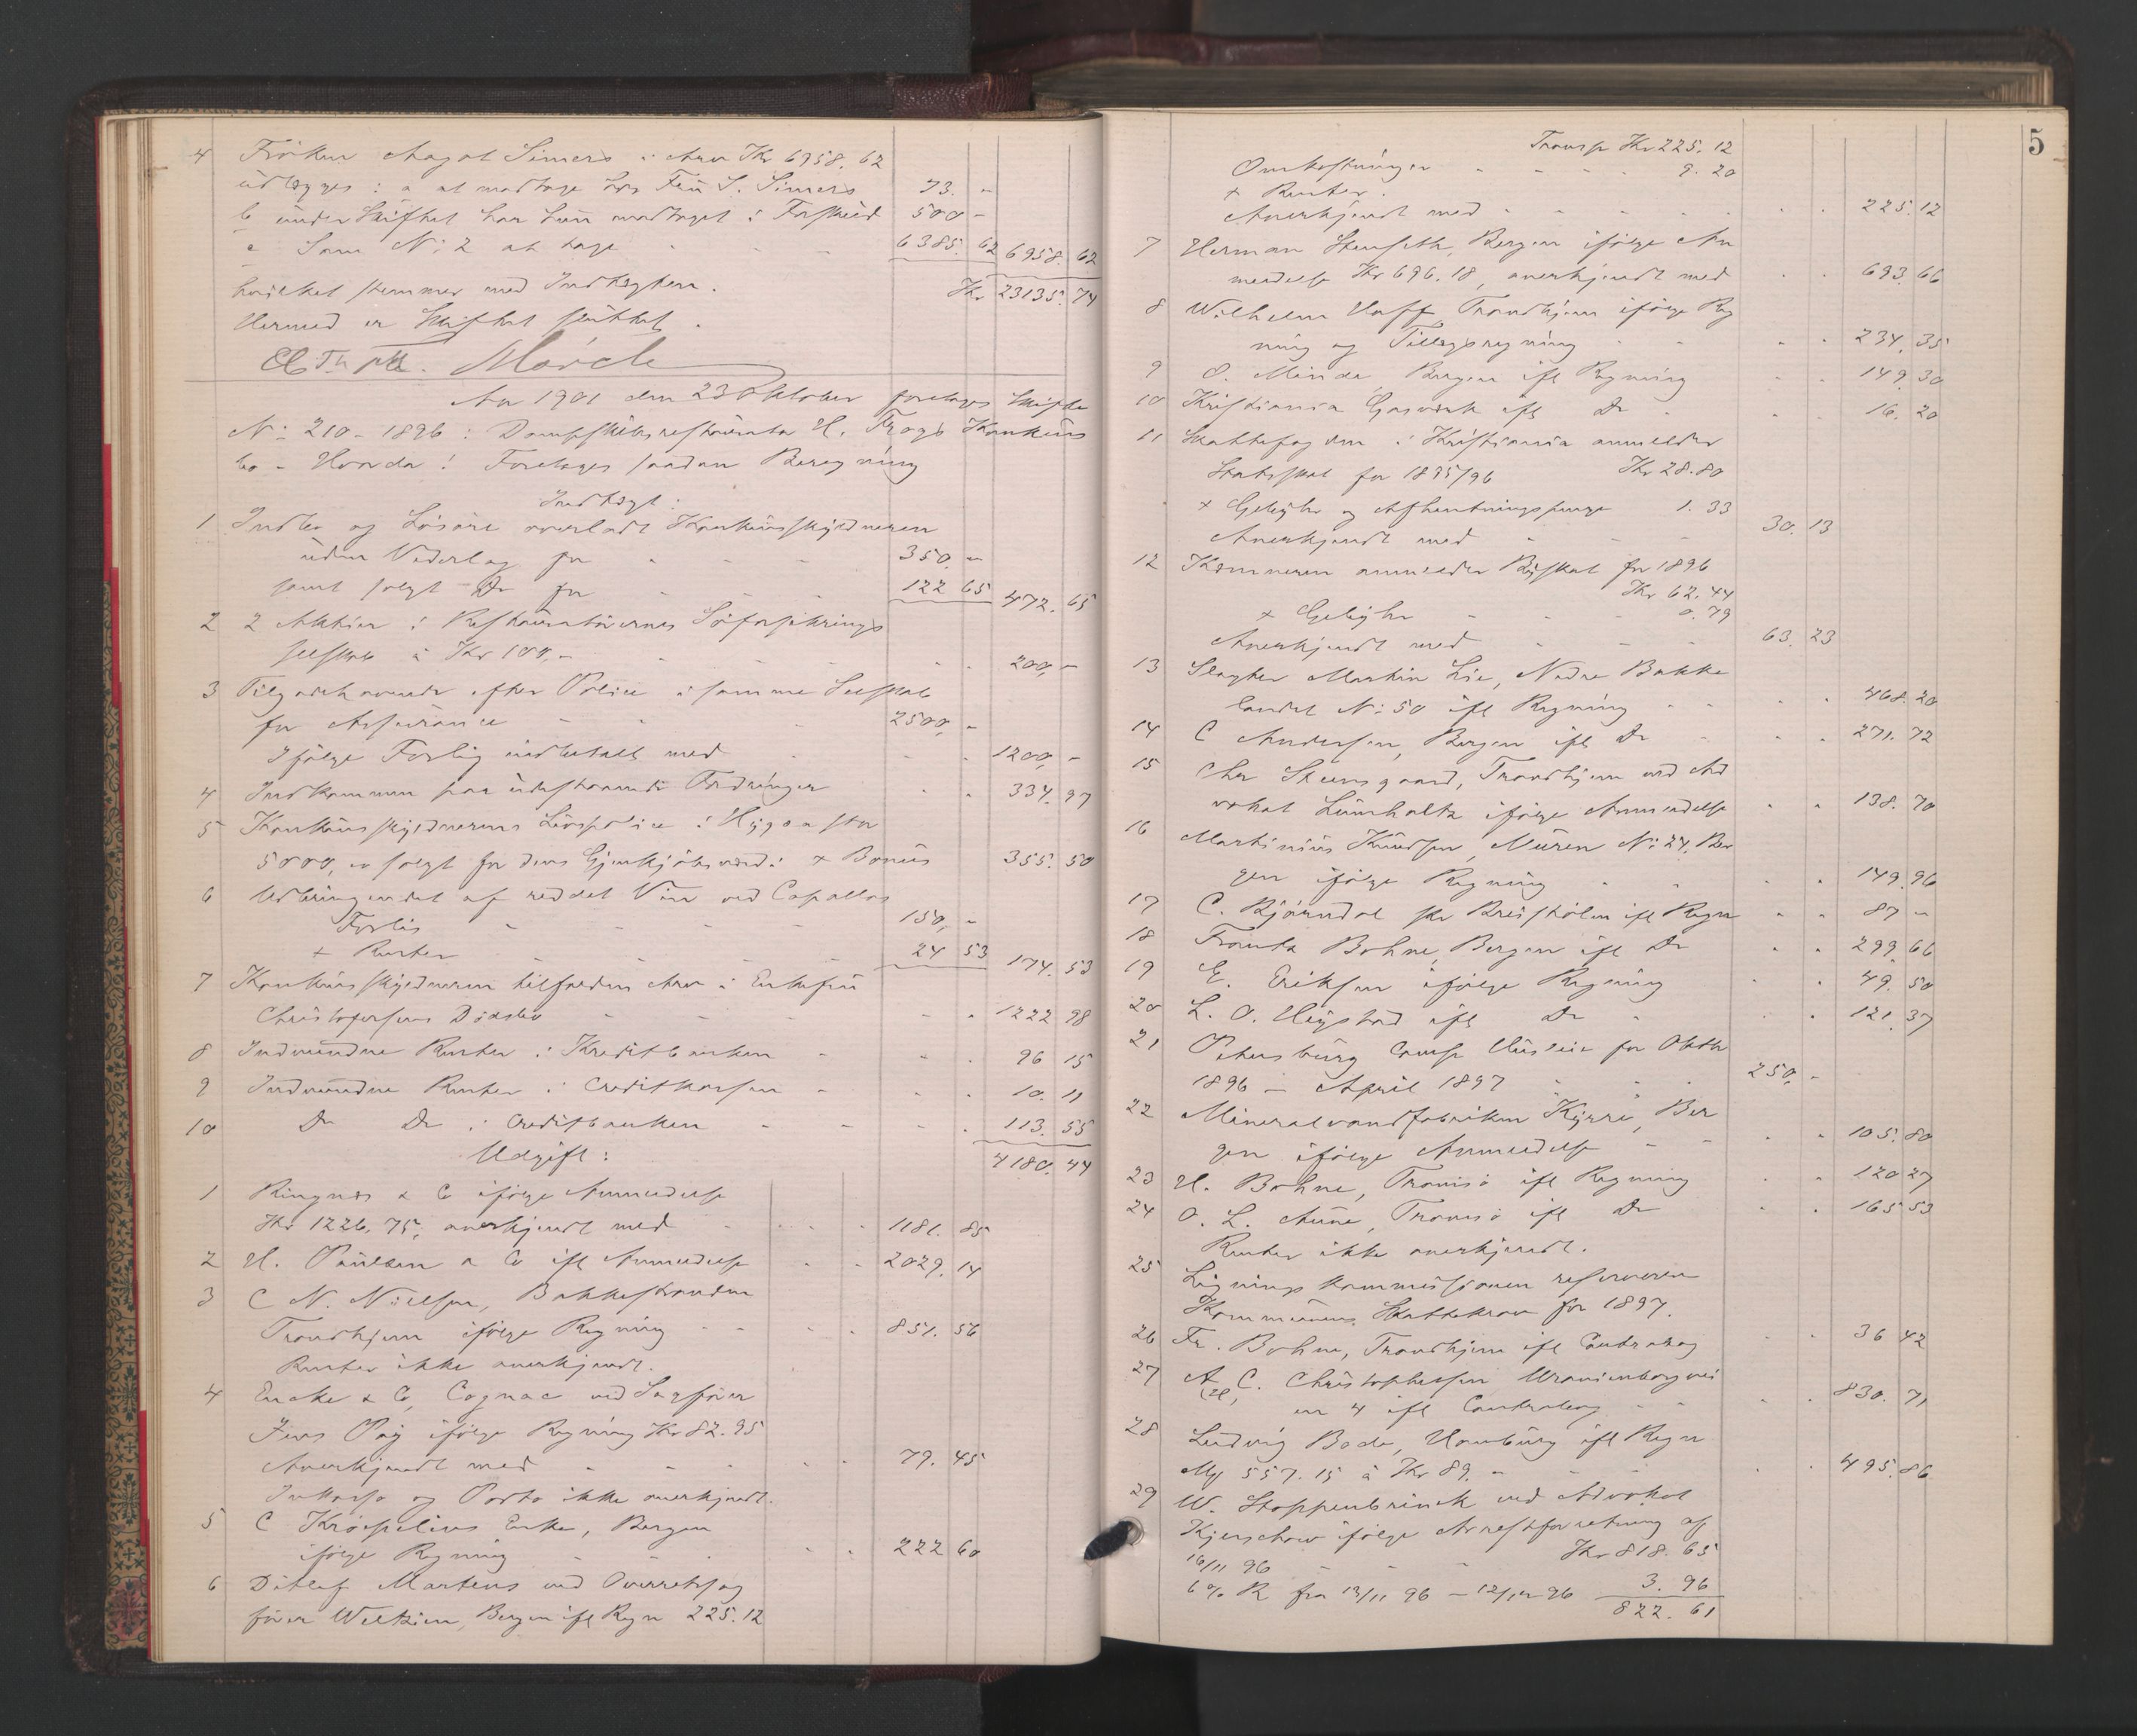 4 Fröken Aagot Simers i Arv Kr 6958.62
udlægges: a at modtage hos Fru S. Simers 73. -
b under Skiftet har hun modtaget i Forskud 500 -
c Som N: 2 at tage 6385.62 6958.62
hvilket stemmer med Indtægten. Kr 23135.74
Hermed er Skiftet sluttet.
Mörch
Aar 1901 den 23 Oktober foretoges Skifte
N: 210 - 1896: Dampskibsrestauratör H. Trogs Konkurs
bo - Hvorda: Foretoges saadan Beregning
Indtægt:
1 Indbo og Lösöre overladt Konkursskyldneren
uden Vederlag for 350. -
samt solgt Do for 122 65 472.65
2 2 Aktier i Restauratörernes Söforsikrings
selskab à Kr 100,- 200, -
3 Tilgodehavende efter Police i samme Selskab
for Assurance 2500, -
Ifölge Forlig indbetalt med 1200, -
4 Indkommen paa udestaaende Fordringer 334.97
5 Konkursskyldnerens Livspolice i Hygea stor
5000, er solgt for dens Gjenkjöbsværdi + Bonus 355.50
6 Udbringendet af reddet Vin ved Capellas
Forlis 150, -
+ Renter 24 53 174.53
7 Konkursskyldneren tilfalden Arv i Enkefru
Christofersens Dödsbo 1222 98
8 Indvundne Renter i Kreditbanken 96 15
9 Indvundne Renter i Creditkassen 10.11
10 Do Do i Creditbanken 113.55
Udgift: 4180.44
1 Ringnæs & Co ifölge Anmeldelse
Kr 1226.75, anerkjendt med 1181.85
2 H. Poulsen & Co ifl Anmeldelse 2029.14
3 C N. Nielsen, Bakkestranden
Trondhjem ifölge Regning 851.56
Renter ikke anerkjendt.
4 Encke & Co, Cognac ved Sagförer
Jens Pay ifölge Regning Kr 82.95
Anerkjendt med 79.45
Inkasso og Porto ikke anerkjendt.
5 C Kröepeliens Enke, Bergen
ifölge Regning 222 60
6 Ditlef Martens ved Overretssag
förer Weltzien, Bergen ifl Regn 225.12
5
Transp Kr 225.12
Omkostninger 9.20
+ Renter.
Anerkjendt med 225.12
7 Herman Stenseth, Bergen ifölge An
meldelse Kr 696.18, anerkjendt med 693.66
8 Wilhelm Hoff Trondhjem ifölge Reg
ning og Tillægsregning 234.35
9 O. Minde, Bergen ifl Regning 149.30
10 Kristiania Gasværk ifl Do 16.20
11 Skattefogden i Kristiania anmelder
Statsskat for 1895/96 Kr 28.80
+ Gebyhr og Afhentningspenge 1.33
Anerkjendt med 30.13
12 Kæmneren anmelder Byskat for 1896
Kr 62.44
+ Gebyhr 0.79
Anerkjendt med 63.23
13 Slagter Martin Lie, Nedre Bakke
landet N: 50 ifl Regning 468.20
14 C Andersen, Bergen ifl Do 271.72
15 Chr Steensgaard, Trondhjem ved Ad
vokat Lumholtz ifölge Anmeldelse 138.70
16 Martinius Knudsen, Muren N: 24, Ber
gen ifölge Regning 149.96
17 C. Björndal pr Breistölen ifl Regn 87 -
18 Frantz Bohne, Bergen ifl Do 299.66
19 E. Eriksen ifölge Regning 49.50
20 L. O. Ulrystad ifl Do 121.37
21 Petersburg Comp Husleie for Oktbr
1896 - April 1897 250, -
22 Mineralvandfabriken "Kyrre", Ber
gen ifölge Anmeldelse 105.80
23 H. Bohne, Tromsö ifl Regning 120 27
24 O. L. Aune, Tromsö ifl Do 165 53
Renter ikke anerkjendt.
25 Ligningskommissionen reserverer
Kommunens Skattekrav for 1897.
26 Fr. Bohne, Trondhjem ifl Contrabog 36 42
27 A C. Christophersen Uranienborgvei
en 4 ifl Contrabog 830.71
28 Ludvig Bode, Hamburg ifl Regn
Mk 557.15 à Kr 89, - 495.86
29 W. Stoppenbrinck ved Advokat
Kjerschow ifölge Arrestforretning af
16/11 96 Kr 818.65
6% R fra 13/11 96 - 12/12 96 3.96
822.61